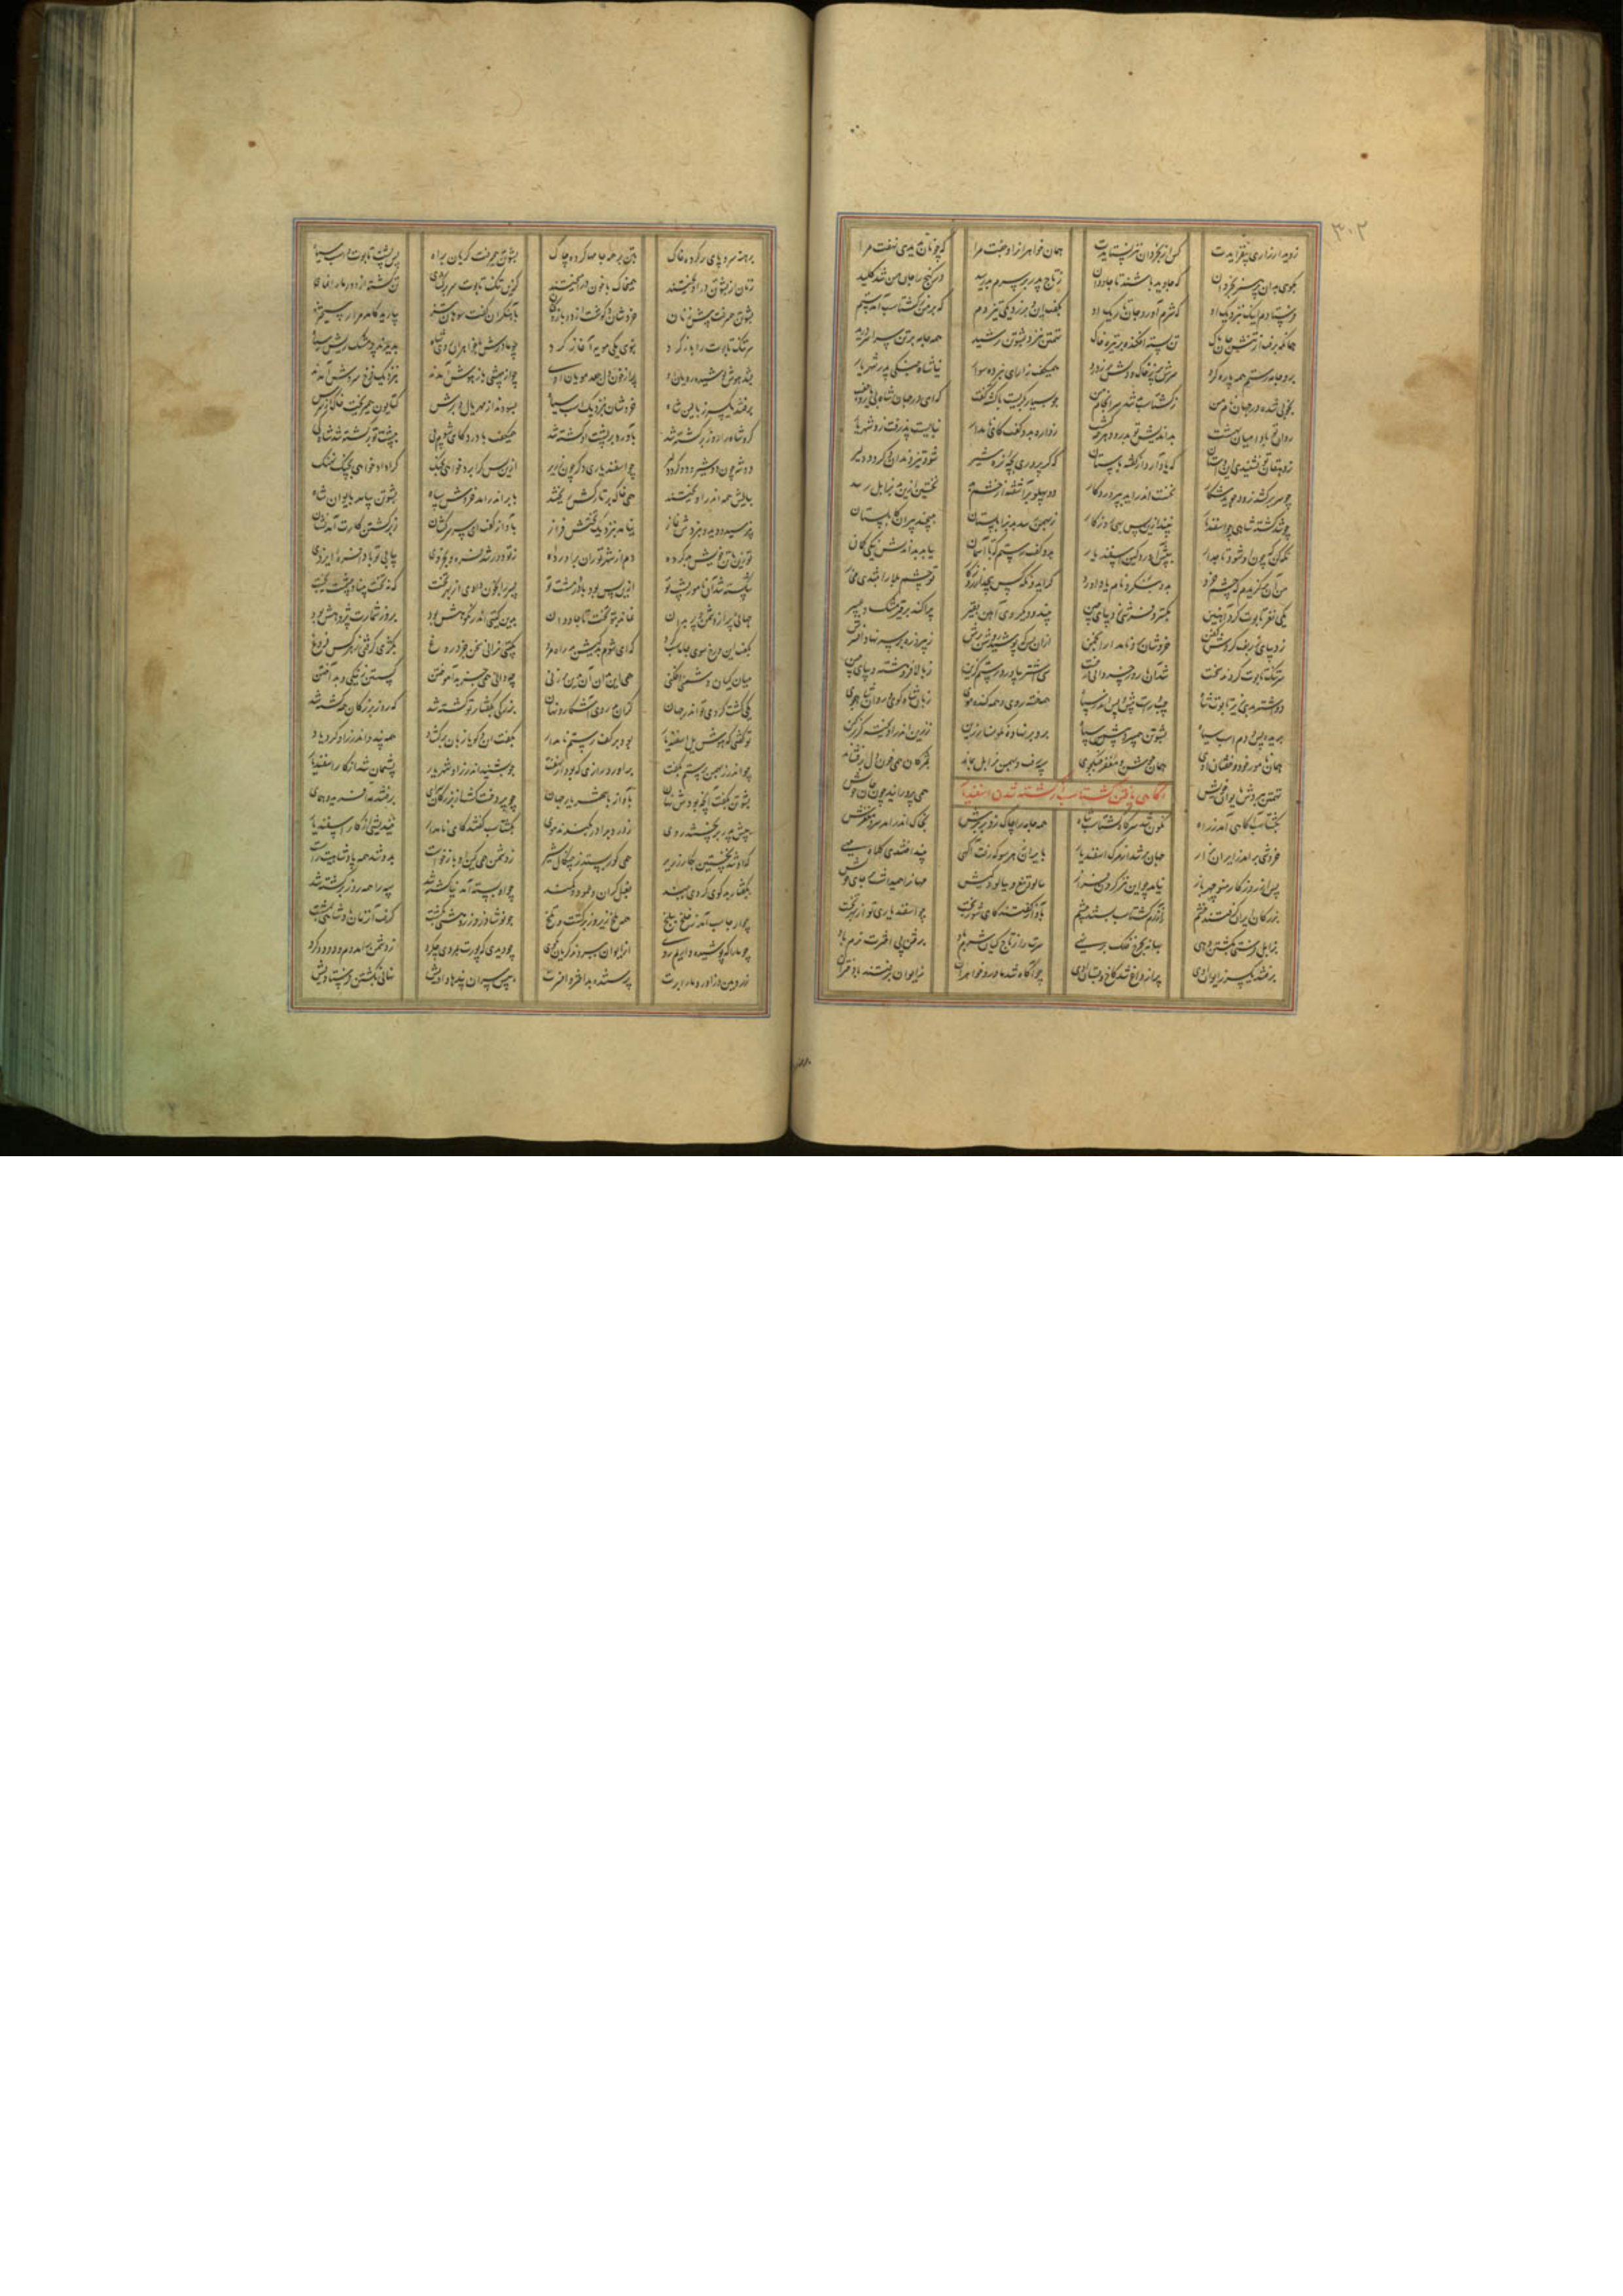 ز دیدار زاری بیفزایدت کس از بخردان نیز نستایدت همان خواهران را و جفت مرا
بگوی بدان پرهنر بخردان که جاوید باشند تا جاودان ز تاج پدر بر سرم بد رسید در گنج را جان من شد کلید
فرستادم اینک به نزدیک او که شرم آورد جان تاریک او بگفت این و برزد یکی تیز دم که بر من ز گشتاسب آمد ستم
همانگه برفت از تنش جان پاک تن خسته افکنده بر تیره خاک تهمتن به نزد پشوتن رسید همه جامه بر تن سراسر درید
برو جامه رستم همه پاره کرد سرش پر ز خاک و دلش پر ز درد همی گفت زار ای نبرده سوار نیا شاه جنگی پدر شهریار
بخوبی شده در جهان نام من ز گشتاسب بد شد سرانجام من چو بسیار بگریست با کشته گفت که ای در جهان شاه بی یار و جفت
روان تو بادا میان بهشت بداندیش تو بدرود هرچه کشت زواره بدو گفت کای نامدار نبایست پذرفت زو
ز دهقان تو نشنیدی این داستان که یاد آرد از گفته باستان که گر پروری بچه نره شیر شود تیز دندان و گردد دلیر
چو سر برکشد زود جوید شکار نخست اندر آید به پروردگار دو پهلو برآشفته از خشم بد نخستین ازین بد به زابل رسد
چو شد کشته شاهی چو اسفندیار ازین پس بهی روزگار ز بهمن رسد بد به زابلستان بپیچند پیران کابلستان
نگه کن که چون او شود تاجدار به پیش آورد کین اسفندیار بدو گفت رستم که با آسمان نیابد بداندیش نیکی گمان
من آن برگزیدم که چشم خرد بدو بنگرد نام یاد آورد تو چشم بلا را به تندی مخار
یکی نغز تابوت کرد آهنین بگسترد فرشی ز دیبای چین بیندود یک روی آهن به قیر پراکند بر قیر مشک و عبیر
ز دیبای زربفت کردش کفن خروشان برو نامدار انجمن ازان پس بپوشید روشن برش ز پیروزه بر سر نهاد افسرش
سر تنگ تابوت کردند سخت شد آن بارور خسروانی درخت اشتر بیاورد رستم گزین ز بالا فروهشته دیبای چین
دو اشتر بدی زیر تابوت شاه چپ و راست پیش و پس اندر سپاه همه خسته روی و همه کنده موی زبان شاه گوی و روان شاه جوی
بریده بش و دم اسب سیاه پشوتن همی برد پیش سپاه برو بر نهاده نگونسار زین ز زین اندر آویخته گرز کین
همان نامور خود و خفتان اوی همان جوشن و مغفر جنگجوی سپه رفت و بهمن به زابل بماند به مژگان همی خون دل برفشاند
تهمتن ببردش به ایوان خویش همی پرورانید چون جان خویش
آگاهی یافتن گشتاسب از کشته شدن اسفندیار
به گشتاسب آگاهی آمد ز راه نگون شد سر گاه گشتاسب شاه همه جامه را چاک زد بر برش بخاک اندر آمد سر و مغفرش
خروشی برآمد ز ایران زار جهان پر شد از مرگ اسفندیار به ایران ز هر سو که رفت آگهی کلاه مهی
پس از روزگار منوچهر باز نیامد چو این نیز گردن فراز بیالود تیغ و بپالود کیش مهان را همی داشت بر جای خویش
بزرگان ایران گرفتند خشم ز آزرم گشتاسب شستند چشم به آواز گفتند کای شوربخت چو اسفندیاری تو از بهر تخت
به زابل فرستی به کشتن دهی سرت را ز تاج کیان شرم باد به رفتن پی اخترت نرم باد
برفتند یکسر ز ایوان اوی پر از داغ شد کاخ و اوی چو آگاه شد مادر و خواهران ز ایوان برفتند با دختران
برهنه سر و پای پر گرد و خاک به تن بر همه جامها کرده چاک پشوتن همی رفت گریان براه پس پشت تابوت و اسب سیاه
زنان از پشوتن درآویختند همی خاک با خون درآمیختند کزین تنگ تابوت سر برگشای تن کشته از دور ما را نمای
پشوتن همی رفت پیش زنان خروشان و گوشت از دو بازو کنان به آهنگران گفت سوهان تیز بیارید کامد مرا رستخیز
سر تنگ تابوت را باز کرد بنوی یکی مویه آغاز کرد چو مادرش با خواهران روی شاه بدیدند پر مشک ریش سیاه
بشد هوش پوشیده رویان اوی پر از خون دل جعد مویان اوی چو از بیهشی باز هوش آمدند به نزدیک فرخ سروش آمدند
برفتند یکسر ز بالین شاه خروشان به نزدیک اسب سیاه بسودند از مهر یال و برش کتایون همی ریخت خاک از سرش
کزو شاه را روز برگشته شد به آورد بر پشت او کشته شد همی گفت با درد کای شوم پی به پشت تو بر کشته شد شاه کی
چو اسفندیاری ازین پس کرا برد خواهی به جنگ کرا داد خواهی به چنگ نهنگ
به یالش همه اندر آویختند همی خاک بر تارکش ریختند به ابر اندر آمد خروش سپاه پشوتن بیامد به ایوان شاه
نپرسید و دید و نبردش نماز نیامد به نزدیک تختش فراز به آواز گفت ای سر سرکشان ز برگشتن کارت آمد نشان
تو زین با تن خویش بد کرده دم از شهر توران برآورده ز تو دور شد فره و بخردی بیابی تو بادافره ایزدی
شکسته شد آن نامور پشت تو ازین پس بود باد در مشت تو پسر را بخون دادی از بهر تخت که نه تخت بیناد چشمت نه بخت
جهانی پر از دشمن و پر بدان نماند بتو تخت تا جاودان بدین گیتی اندر نکوهش بود بروز شمارت پژوهش بود
بگفت این و رخ سوی جاماسب کرد که ای شوم بدکیش بی راه مرد بگیتی ندانی سخن جز دروغ بکژی گرفتی ز هر کس فروغ
میان کیان دشمنی افکنی همی این بدان آن بدین برزنی چه دانی همی جز بد آموختن گسستن ز نیکی و بد
یکی کشت کردی تو اندر جهان آشکار و نهان بزرگی بگفتار تو کشته شد که روز بزرگان همه گشته شد
تو گفتی که هوش یل اسفندیار بود بر کف رستم نامدار بگفت این و گویا زبان برگشاد همه پند و اندرز او کرد یاد
چو اندرز بهمن به رستم بگفت برآورد رازی که بود چو بشنید اندرز او شهریار پشیمان شد از کار اسفندیار
پشوتن بگفت آنچه بودش نهان به آواز با شهریار جهان چو پردخت گشت از بزرگان سرای برفتند به آفرید و همای
به پیش پدر بر بخستند روی ز درد برادر بکندند موی به گشتاسب گفتند کای نامدار نیندیشی از کار اسفندیار
که او شد نخستین بکین زریر همی گور بستد ز چنگال شیر ز دشمن همی کین او باز خواست بدو شد همه پادشاهیت راست
بگفتار بدگوی کردی به بند بغل گران و عمود و کمند چو او بسته آمد نیا کشته شد سپه را همه روز برگشته شد
چو ارجاسب آمد ز خلخ به بلخ چو نوشاذر و زردهشتی بکشت گرفت آن زمان پادشاهی بمشت
چو ما را که پوشیده داریم روی از ایوان ببردند گریان بکوی چو دیدی که پورت بمردی چه کرد ز دشمن برآمد دم و دود و گرد
ز رویین دز آورد ما را برت پرستنده بد اختر و افسرت